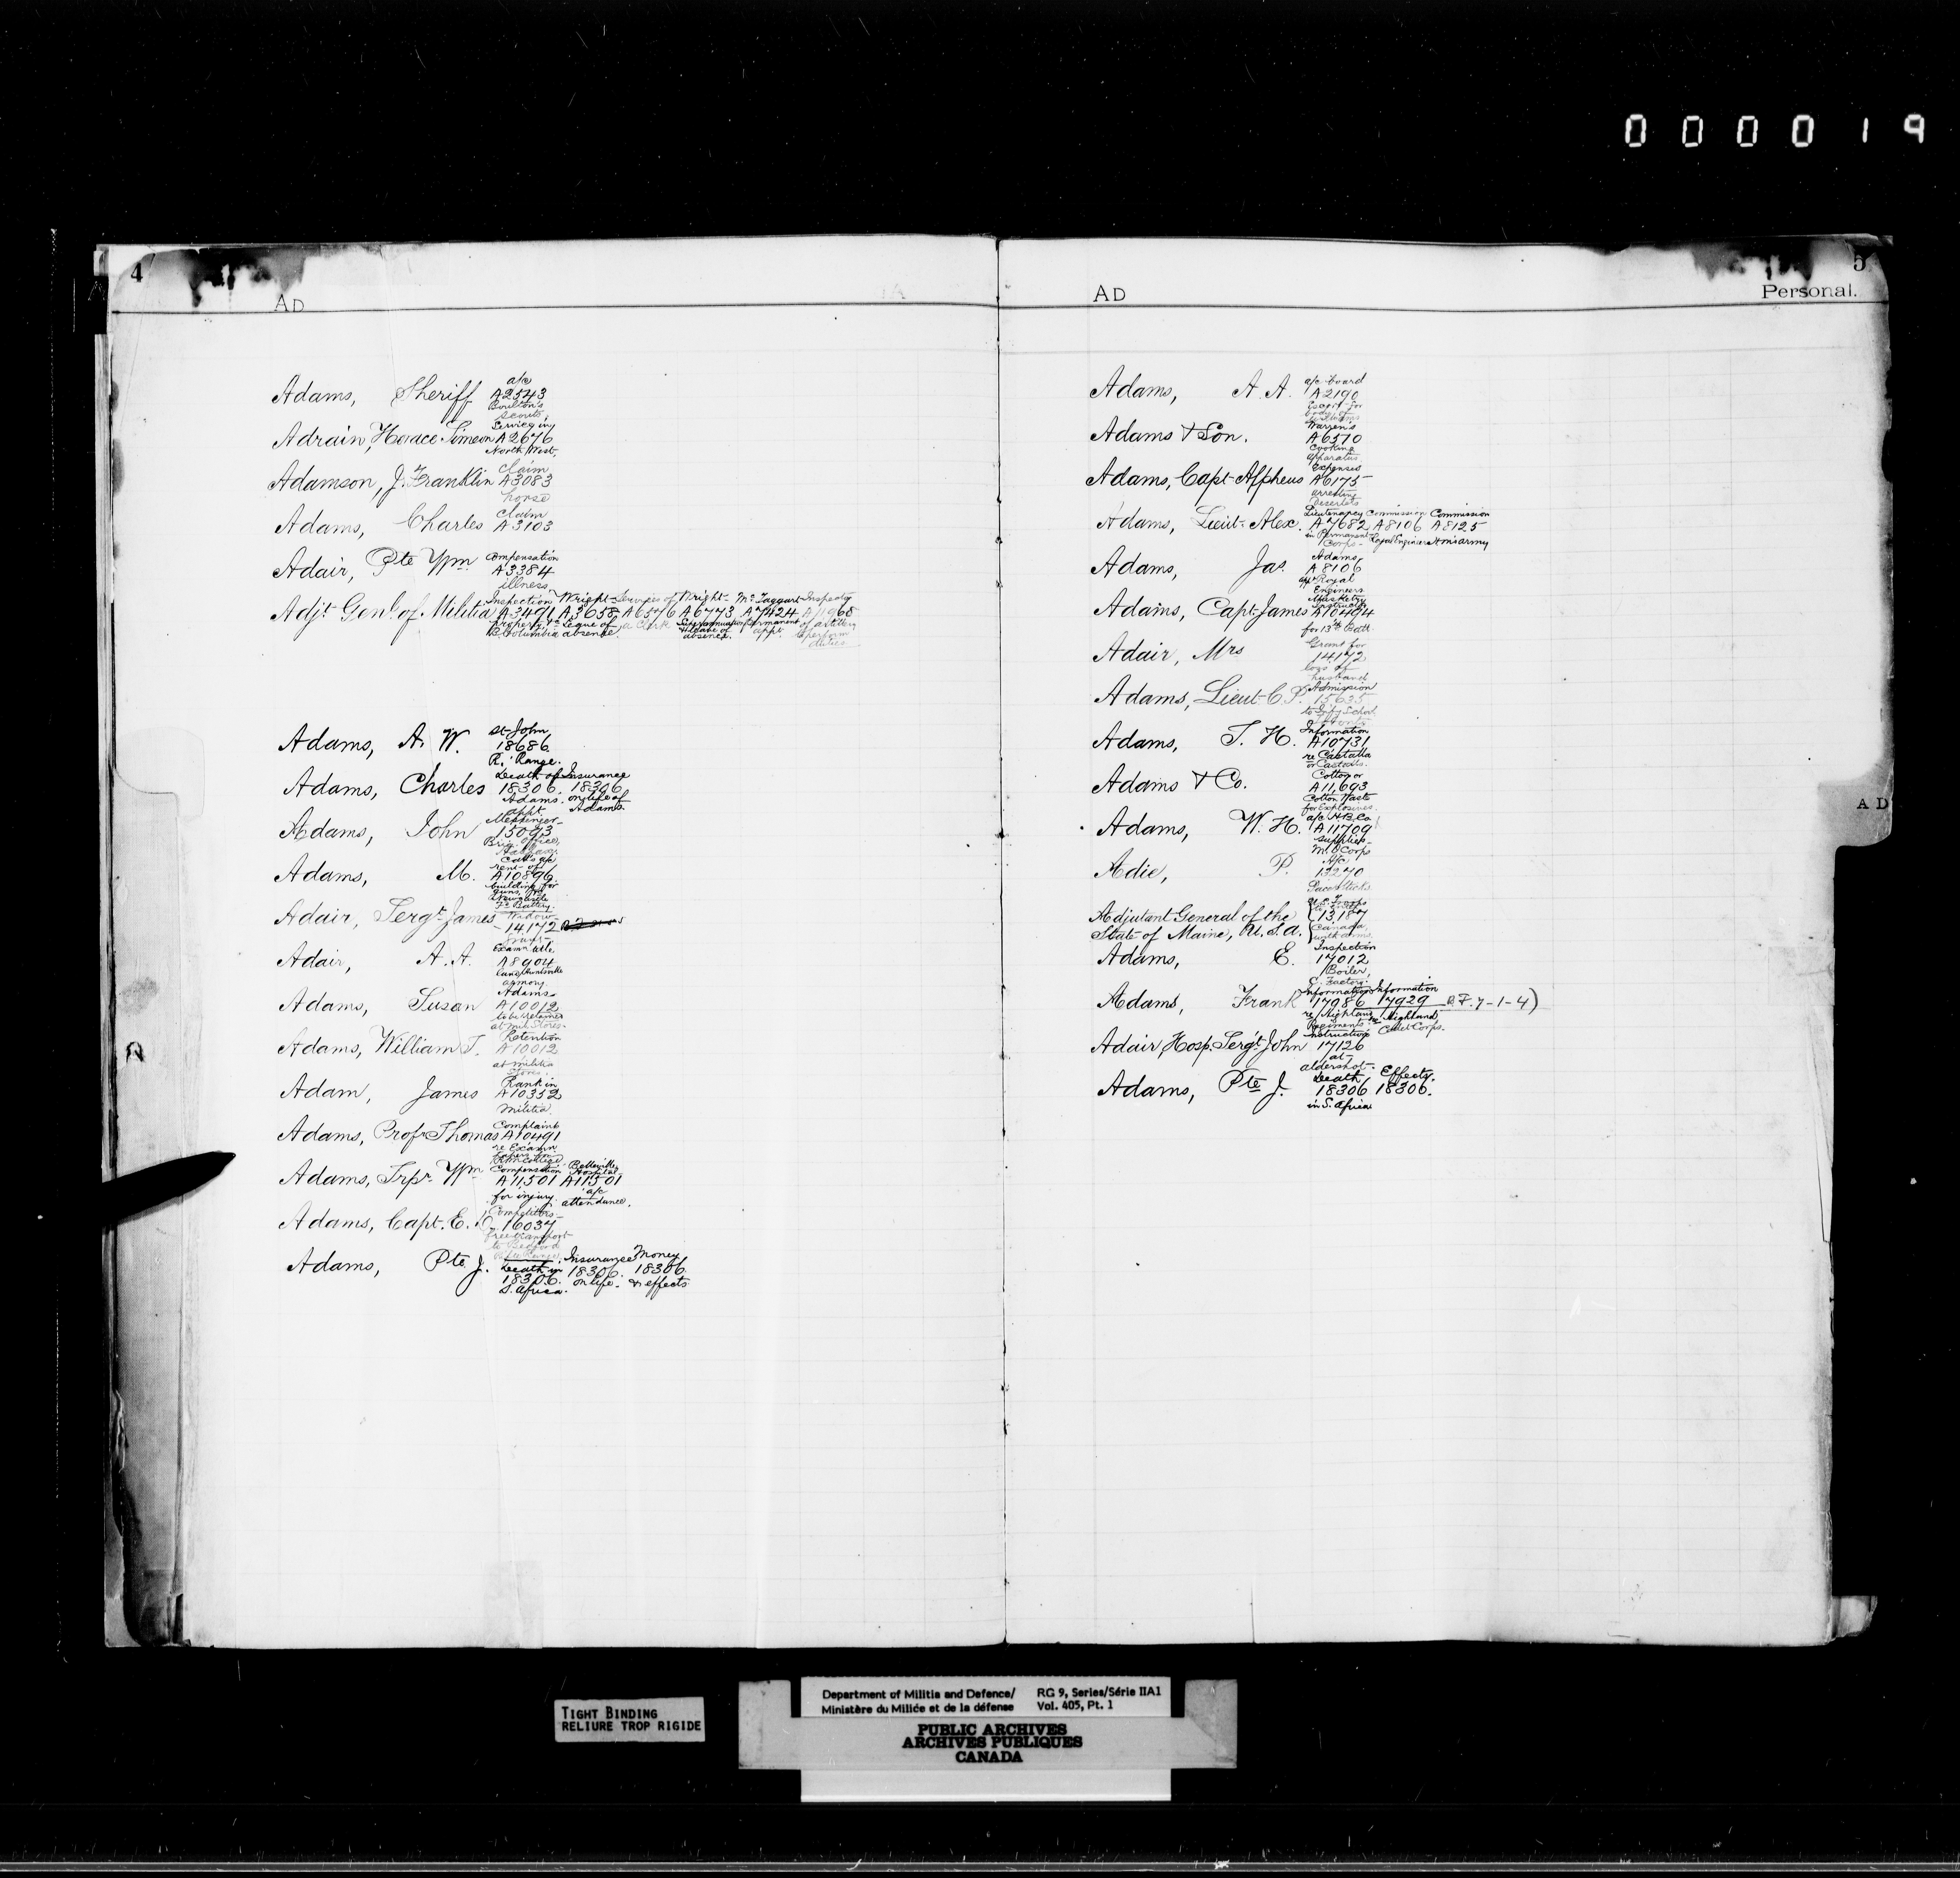 000019
4
AD
Adams, Sheriff
a/c
A2543
Boulton's
Scouts
Adrain, Horace Simeon
Serving in
A2676
North West
Adamson, J. Franklin
Claim
A3083
horse
Adams, Charles
Claim
A3103
Adair, Pte Wm
Compensation
A3384
illness
Adjt Genl. of Militia
Inspection Wright Services of Wright Mc Taggart Inspector
A3491 A3658 A6576 A6773 A7424 A11968
property, leave of a Clerk Superannuation permanent of artillery
B. Columbia absence & leave of absence. appt. to perform
duties
Adams, A. W.
St John
18686
R. Range.
Adams, Charles
Death of Insurance
18306. 18306
Adams. on life of
Adams.
Adams, John
appt.
Messenger
15093
Brig. Office,
Adams, M.
rent of
A10896
building for
guns,
Newcastle
Fd Battery.
Adair, Sergt James
Widow
14172
Adair, A. A.
A8904
armoury
Adams, Susan
Adams
A10012
to be retained
at Mil. Stores.
Adams, William T.
Retention
A10012
at militia
Stores.
Adam, James
Rank in
A10352
Militia.
Adams, Profr Thomas
Complaint
A10491
re Examn.
Adams, Trpr. Wm
Compensation Belleville
Hospital
A11501 A11501
for injury. a/c
attendance.
Adams, Capt. E.
Competitors
16037
free transport
to Bedford
Rifle Range.
Adams, Pte J.
Death in Insurance Money
18306. 18306. 18306
S. Africa. on life. & effects
AD
5
Personal.
Adams, A. A.
a/c board
A2190
Escort for
body of
Williams
Adams & Son.
Warren's
A6510
Cooking
apparatus
Adams, Capt Alpheus
Expenses
A6175
arresting
Deserters
Adams, Lieut Alex.
Lieutenancy Commission Commission
A7682 A8106 A8125
in Permanent Royal Engineers Hms army
Corps
Adams, Jas.
Adams
A8106
Royal
Engineers
Adams, Capt. James
Musketry
Instructor
A10494
for 13th Batt.
Adair, Mrs
Grant for
14172
loss of
husband
Adams, Lieut C. P.
Admission
15635
to Infy School
Toronto
Adams, T. H.
Information
A10731
re Castalia
or Castatis.
Adams & Co.
Cotton or
A11,693
Cotton Waste
for Explosives.
Adams, W. H.
a/c H.B.Co
A11709
supplies
M. O Corps
Adie, P.
A/c
13270
Adjutant General of the
State of Maine, U.S.A.
13,187
Canada,
with arms.
Adams, E.
Inspection
17012
Boiler,
C. Factory.
Adams, Frank
Information Information
17986 17929 (B.F. 7-1-4)
re Highland re Highland
Regiments Cadet Corps.
Adair, Hosp. Sergt John
Instruction
17126
at
Aldershot
Adams, Pte J.
Death Effects.
18306 18306.
in S. Africa
AD
TIGHT BINDING
RELIURE TROP RIGIDE
Department of Militia and Defence/
Ministère du Milice et de la défense
RG 9, Series/Série IIA1
Vol. 405, Pt. 1
PUBLIC ARCHIVES
ARCHIVES PUBLIQUES
CANADA